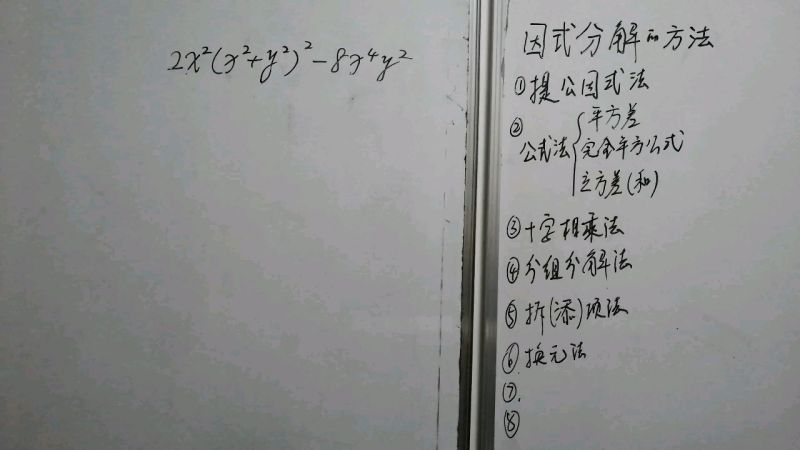 2x²(x²+y²)²-8x⁴y²
因式分解的方法
①提公因式法
② 公式法 { 平方差
完全平方公式
立方差(和)
③十字相乘法
④分组分解法
⑤拆(添)项法
⑥换元法
⑦.
⑧